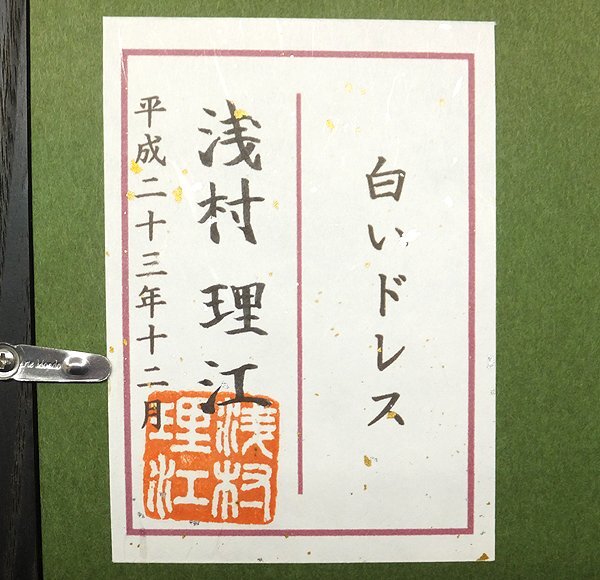 白いドレス
浅村 理江
平成二十三年十二月
浅村
理江